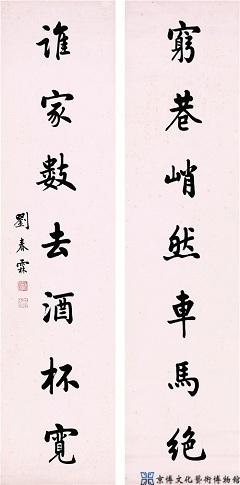 窮巷峭然車馬絕
誰家數去酒杯寬
劉春霖
京博文化藝術博物館